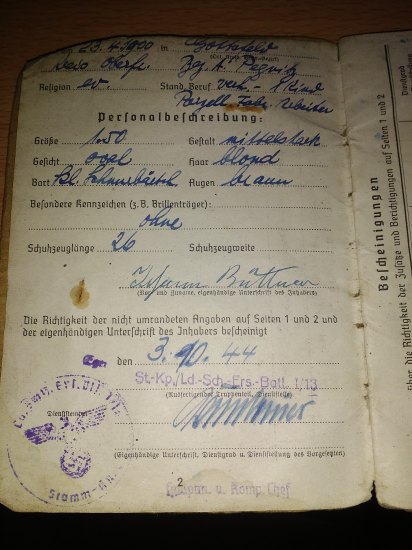 23. 4. 1900 in Gottsfeld
Bayr. Oberfr. Bez. A. Pegnitz
Religion ev. Stand Beruf verh. - 1 Kind
Porzell. Fabr. Arbeiter
Personalbeschreibung:
Größe 150 Gestalt mittelstark
Gesicht oval Haar blond
Bart kl. Schnurrbärtch. Augen braun
Besondere Kennzeichen (z. B. Brillenträger):
ohne
Schuhzeuglänge 26 Schuhzeugweite
Johann Büttner
(Vor- und Zuname, eigenhändige Unterschrift des Inhabers)
Die Richtigkeit der nicht umrandeten Angaben auf Seiten 1 und 2 und
der eigenhändigen Unterschrift des Inhabers bescheinigt
den 3. 10. 44
St.-Kp./Ld.-Sch.-Ers.-Batl. I/13
(Ausfertigender Truppenteil, Dienststelle)
Dienststempel
(Eigenhändige Unterschrift, Dienstgrad u. Dienststellung des Vorgesetzten)
2
Hauptm. u. Komp. Chef
Stamm
Bescheinigungen
über die Richtigkeit der Zusätze und Berichtigungen auf Seiten 1 und 2
Datum
Dienstgrad